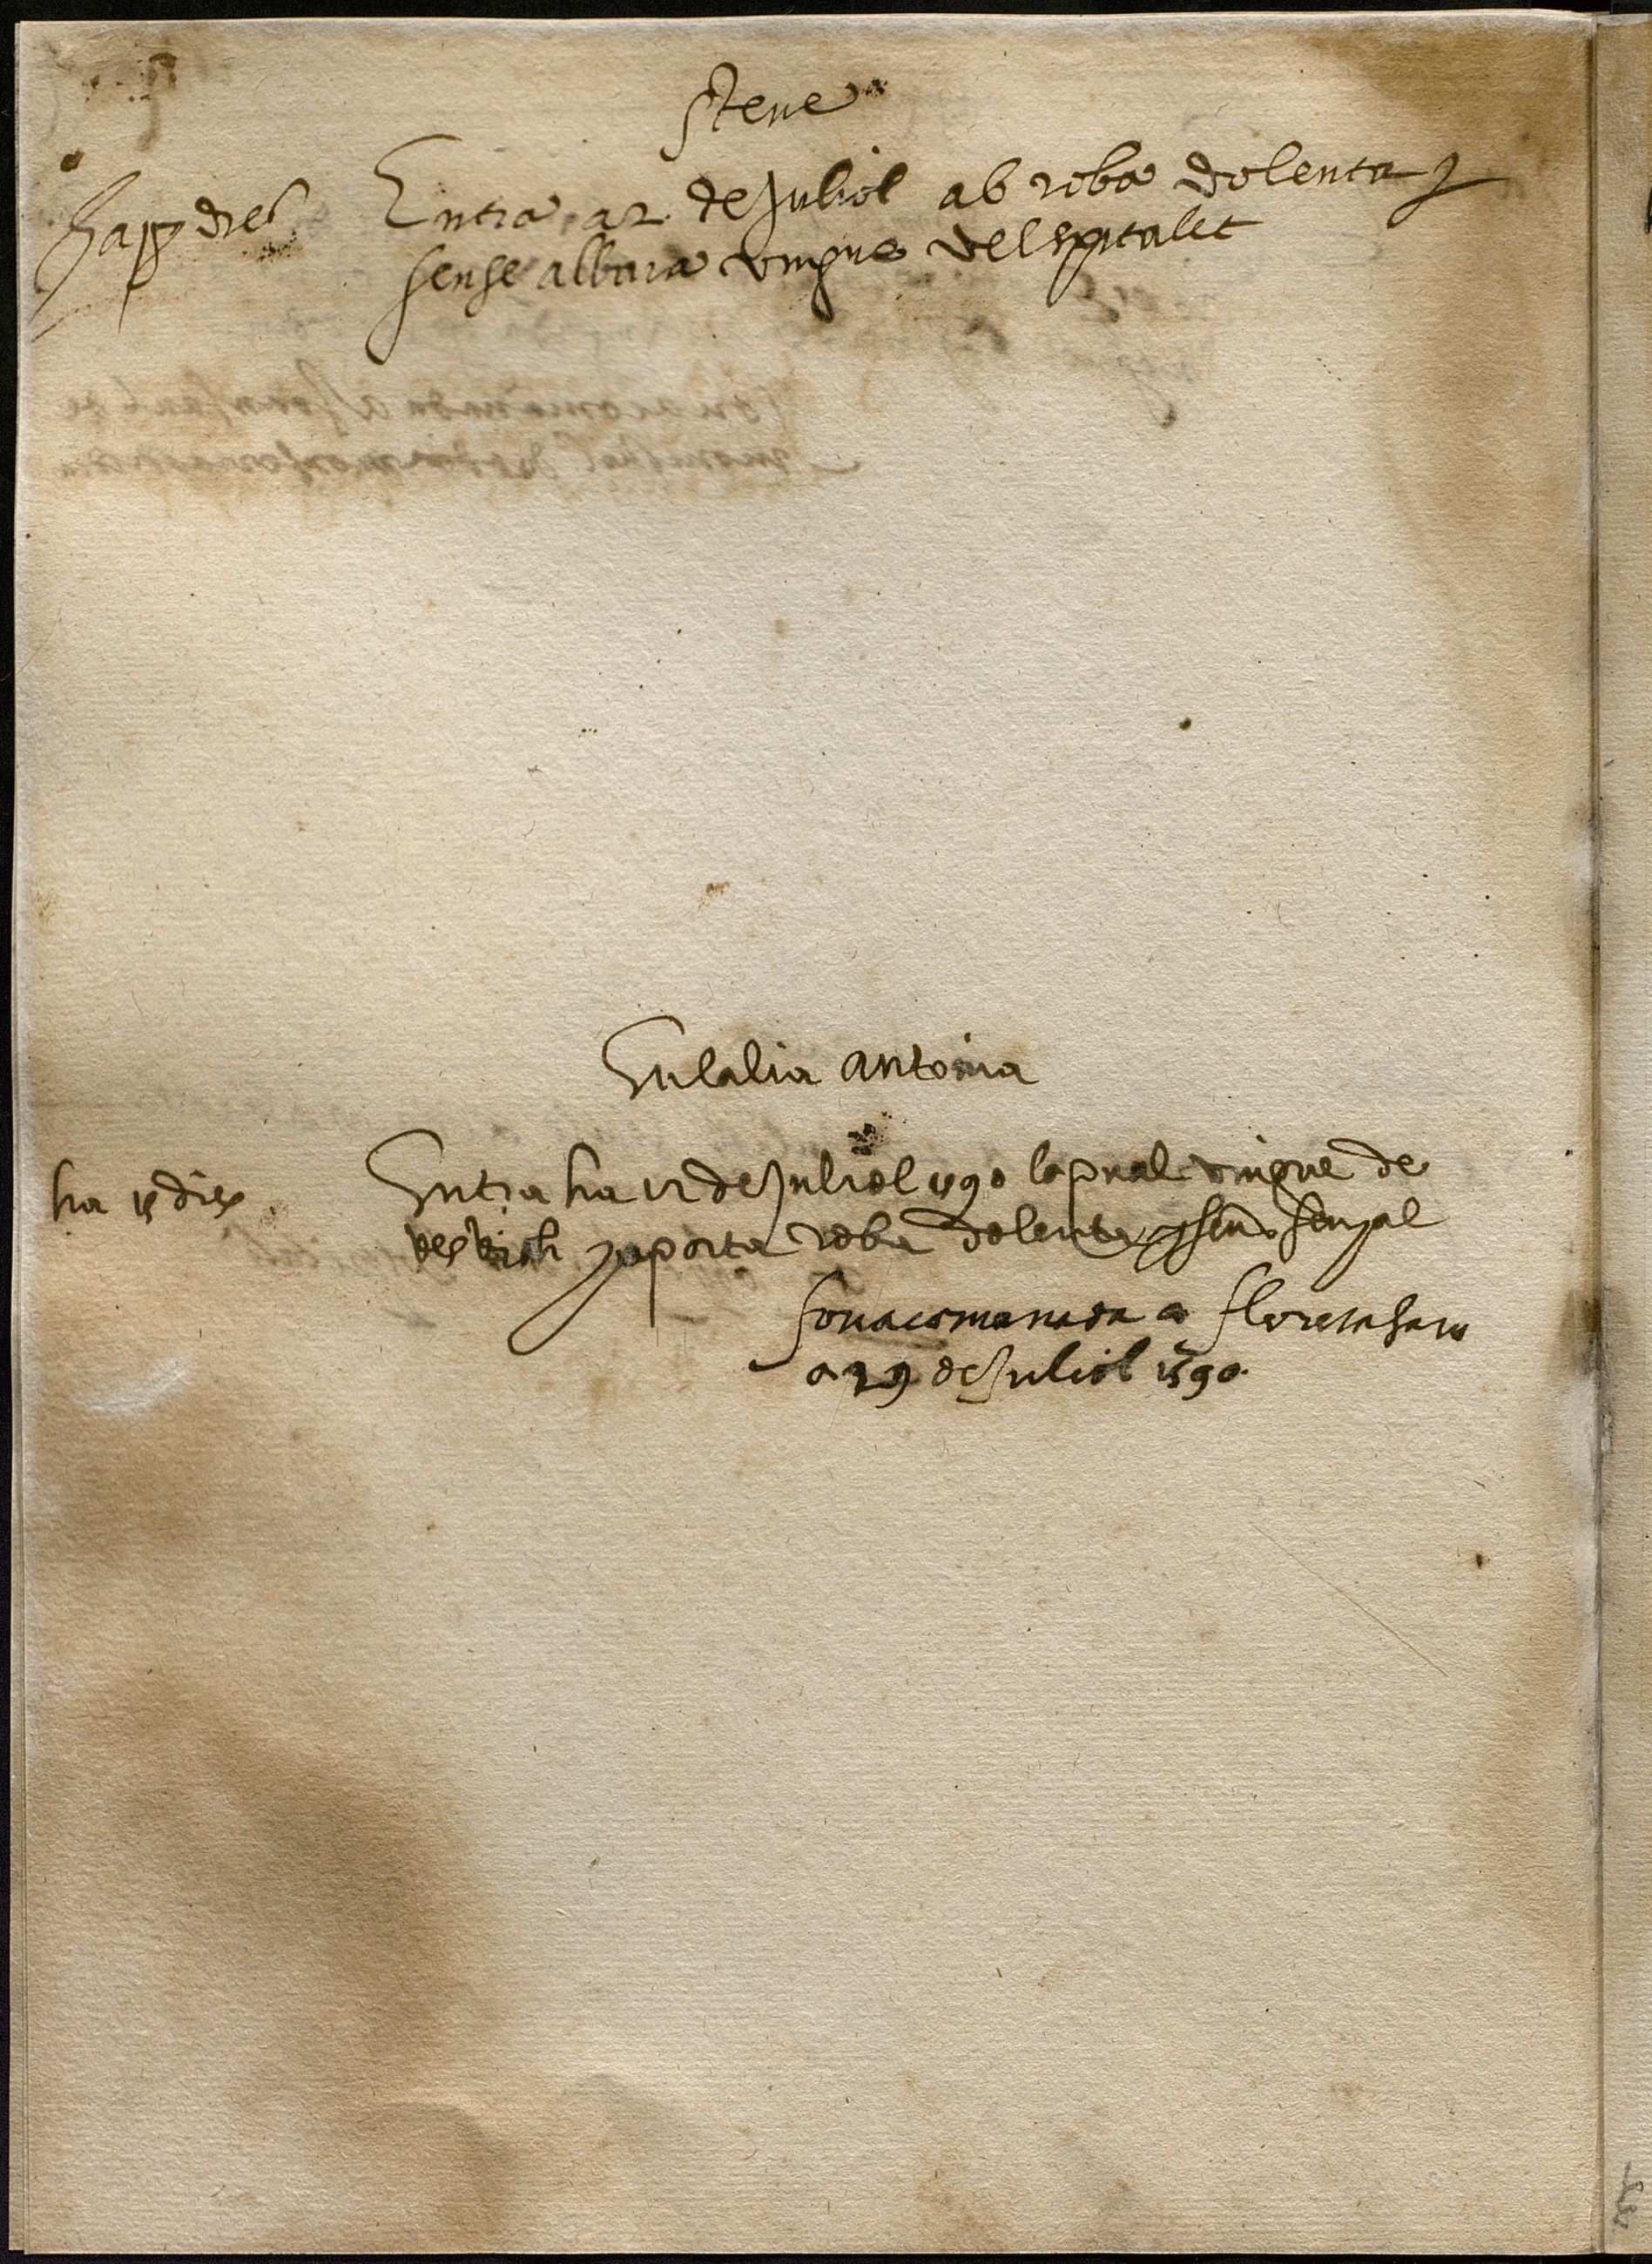 steve
Entra a 2 de Juliol ab roba dolenta y
sense albara vingue del spitalet
Eulalia antonia
ha 15 dies
Entra ha 12 de Juliol 1590 laqual vingue de
de vich y aporta roba dolenta sens senyal
fon acomanada a
a 29 de Juliol 1590